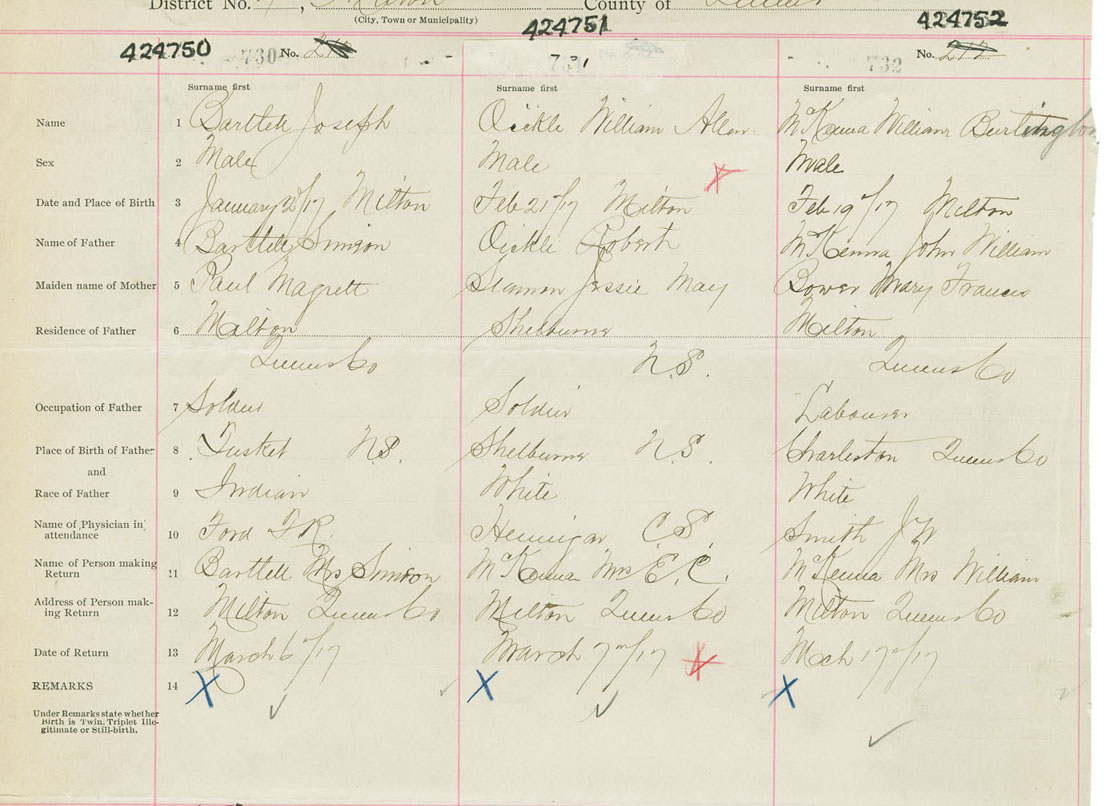 District No. 7, Milton County of Queens
(City, Town or Municipality)
424750 424751 424752
730 No. 731 732 No. 217
Surname first Surname first Surname first
Name 1 Bartlett Joseph Oickle William Allen McKenna William Burlington
Sex 2 Male Male Male
Date and Place of Birth 3 January 2/17 Milton Feb 21st/17 Milton Feb 19th/17 Milton
Name of Father 4 Bartlett Simeon Oickle Robert McKenna John William
Maiden name of Mother 5 Paul Magrett Jessie May Bower Mary Francis
Residence of Father 6 Milton Shelburne Milton
Queens Co N.S. Queens Co
Occupation of Father 7 Soldier Soldier Labourer
Place of Birth of Father 8 Tusket N.S. Shelburne N.S. Charleston Queens Co
and
Race of Father 9 Indian White White
Name of Physician in attendance 10 Ford F R. Hennigar C S. Smith J W
Name of Person making Return 11 Bartlett Mrs Simeon McKenna Mrs E. C. McKenna Mrs William
Address of Person mak-
ing Return 12 Milton Queens Co Milton Queens Co Milton Queens Co
Date of Return 13 March 6th/17 March 7th/17 Mach 17th/17
REMARKS 14 X X X
Under Remarks state whether
Birth is Twin, Triplet Ille-
gitimate or Still-birth.